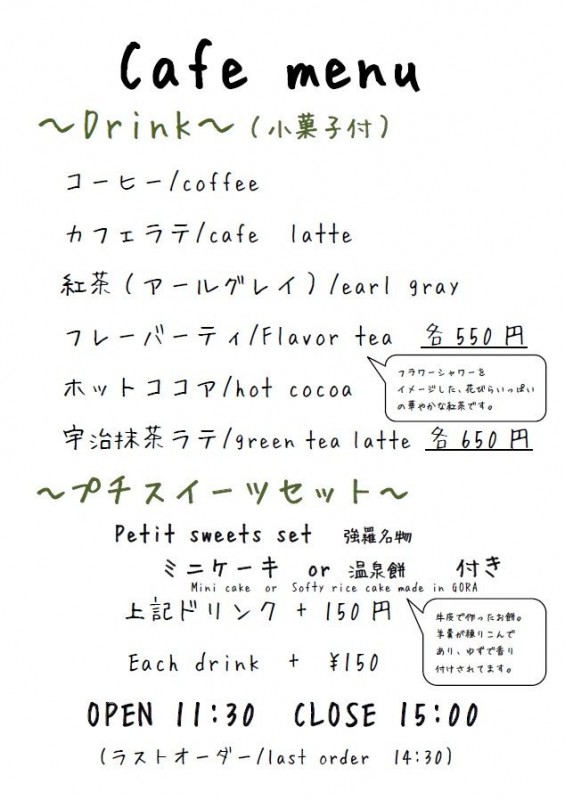 Cafe menu
～Drink～（小菓子付）
コーヒー/coffee
カフェラテ/cafe latte
紅茶（アールグレイ）/earl gray
フレーバーティ/Flavor tea 各550円
フラワーシャワーを
イメージした、花びらいっぱい
の華やかな紅茶です。
ホットココア/hot cocoa
宇治抹茶ラテ/green tea latte 各650円
～プチスイーツセット～
Petit sweets set 強羅名物
ミニケーキ or 温泉餅 付き
Mini cake or Softy rice cake made in GORA
上記ドリンク + 150円
牛皮で作ったお餅。
羊羹が練りこんで
あり、ゆずで香り
付けされてます。
Each drink + ¥150
OPEN 11:30 CLOSE 15:00
（ラストオーダー/last order 14:30）